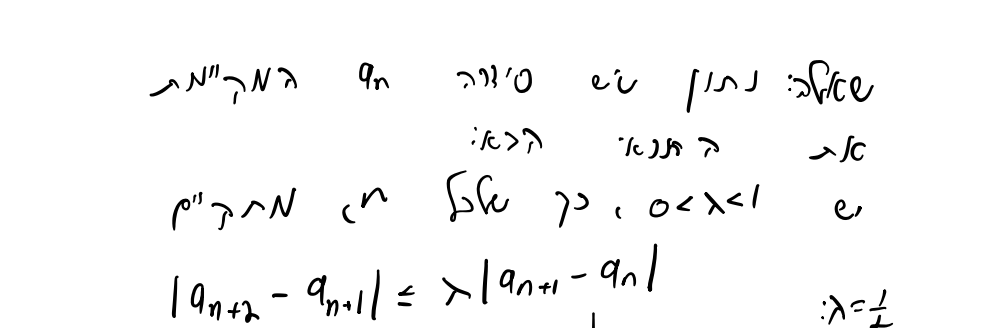 שאלה: נתון שיש סידרה aₙ המקיימת
את התנאי הבא:
יש 0<λ<1, כך שלכל n, מתקיים
|aₙ₊₂ - aₙ₊₁| ≤ λ|aₙ₊₁ - aₙ|